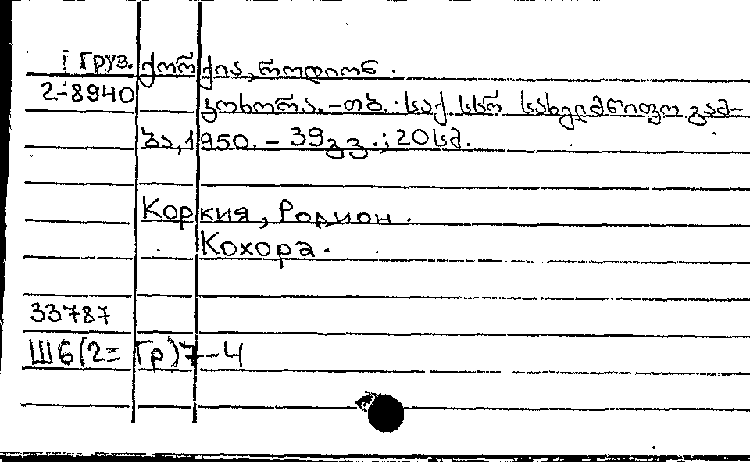 I Груз. ქორქია, როდიონ.
2-8940 კოხორა. – თბ.: საქ. სსრ სახელმწიფო გამ-
ბა, 1950. – 39 გვ.; 20 სმ.
Коркия, Родион.
Кохора.
33787
Ш6(2=Гр)7-4